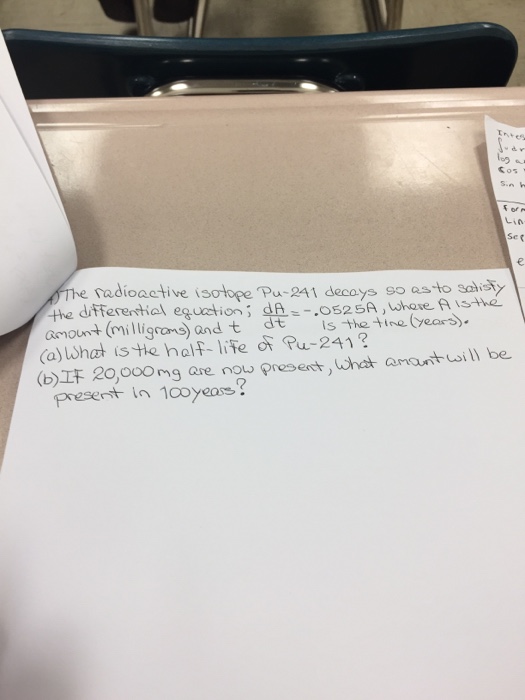 Integ
∫udv
log a
cos
sin h
Form
Lin
Sep
e
1) The radioactive isotope Pu-241 decays so as to satisfy
the differential equation; dA/dt = -.0525A, where A is the
amount (milligrams) and t is the time (years).
(a) What is the half-life of Pu-241?
(b) If 20,000 mg are now present, what amount will be
present in 100 years?